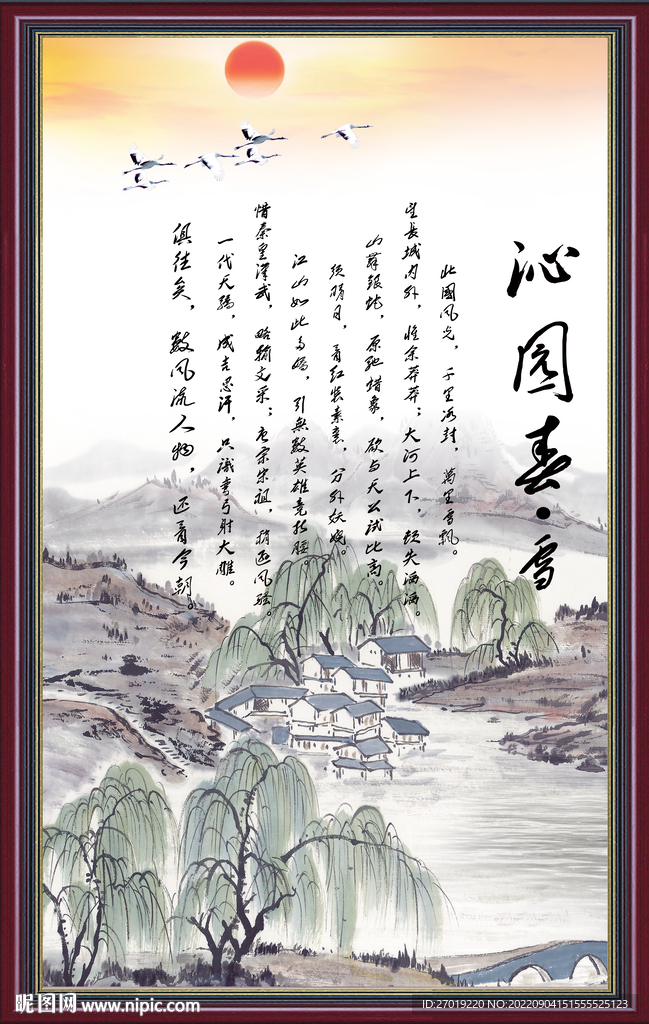 沁园春·雪
北國风光，千里冰封，萬里雪飘。
望長城内外，惟余莽莽；大河上下，顿失滔滔。
山舞银蛇，原驰蜡象，欲与天公试比高。
须晴日，看红装素裹，分外妖娆。
江山如此多娇，引無数英雄竞折腰。
惜秦皇漢武，略输文采；唐宗宋祖，稍逊风骚。
一代天骄，成吉思汗，只識弯弓射大雕。
俱往矣，数风流人物，还看今朝。
昵图网 www.nipic.com
ID:27019220 NO:20220904151555525123